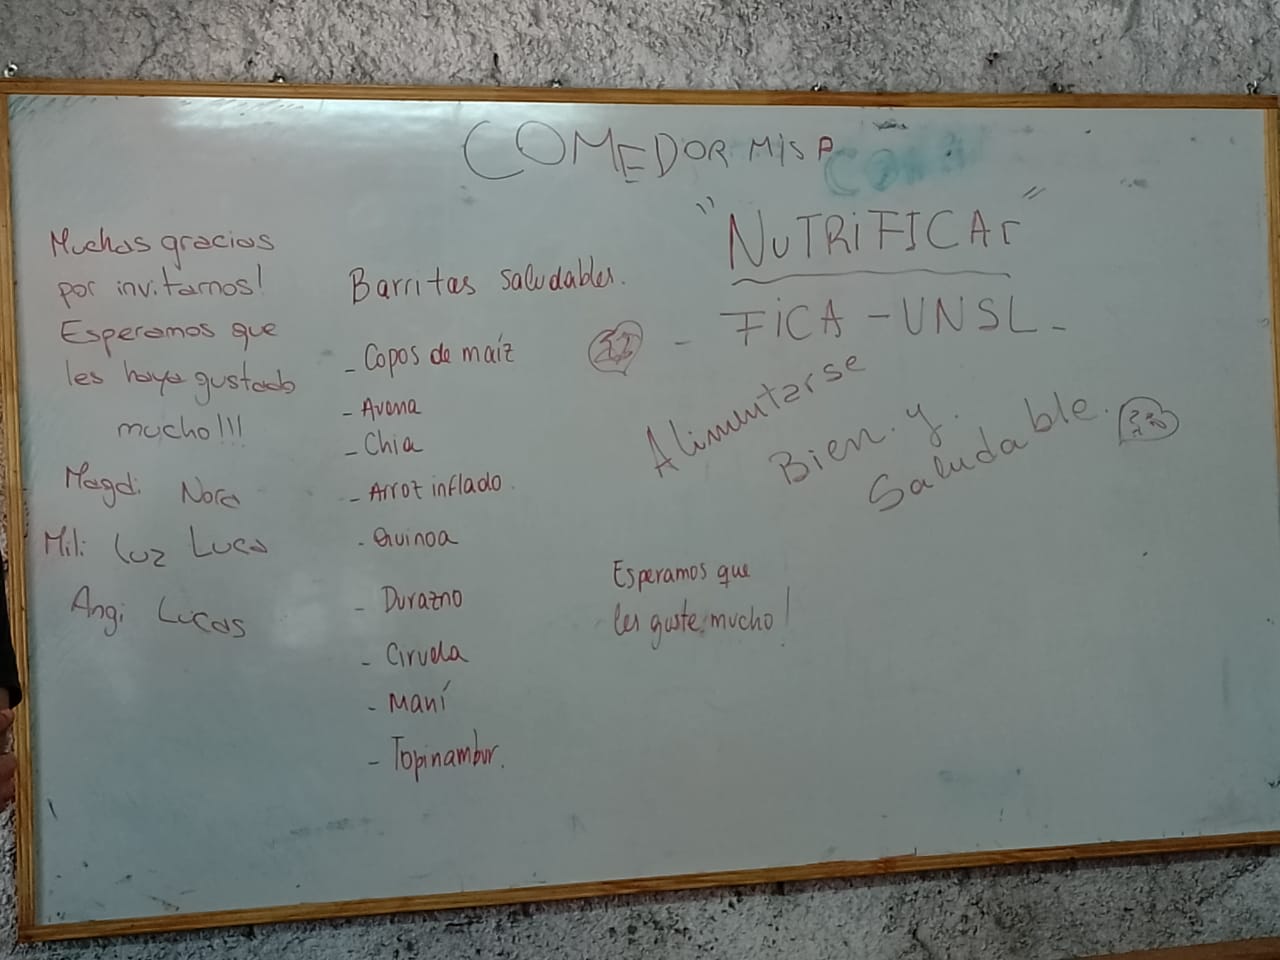 COMEDOR MIS P
"NUTRIFICAr"
FICA - UNSL -
Alimentarse
Bien. y.
Saludable.
Muchas gracias
por invitarnos!
Esperamos que
les haya gustado
mucho!!!
Magdi Nora
Mili Luz Luca
Angi Lucas
Barritas saludables.
- Copos de maíz
- Avena
- Chia
- Arroz inflado
- Quinoa
- Durazno
- Ciruela
- Maní
- Topinambur.
Esperamos que
les guste mucho!